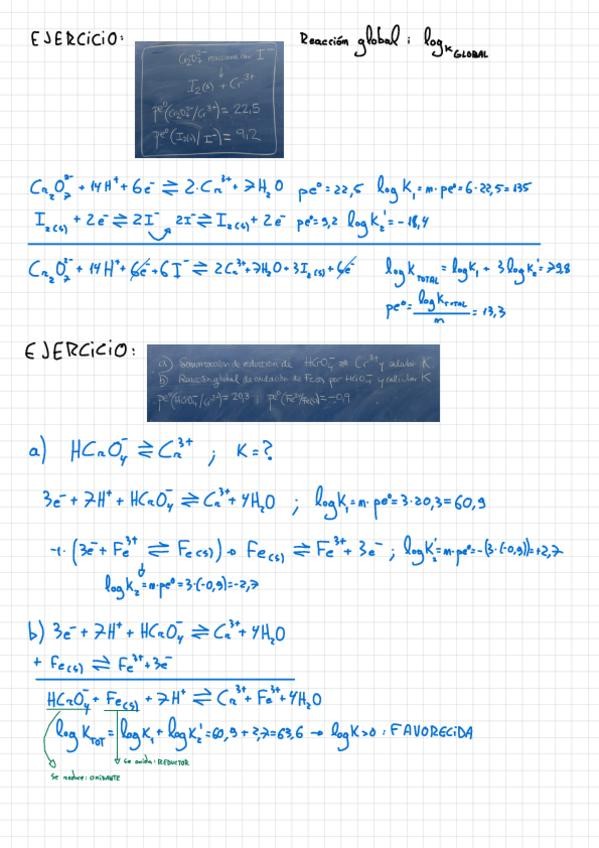 EJERCICIO:
Reacción global: log K GLOBAL
Cr₂O₇²⁻ reacciona con I⁻
↓
I₂(s) + Cr³⁺
pe⁰(Cr₂O₇²⁻/Cr³⁺) = 22,5
pe⁰(I₂(s)/I⁻) = 9,2
Cr₂O₇²⁻ + 14H⁺ + 6e⁻ ⇌ 2·Cr³⁺ + 7H₂O pe⁰ = 22,5 log K₁ = n·pe⁰ = 6·22,5 = 135
I₂(s) + 2e⁻ ⇌ 2I⁻ 2I⁻ ⇌ I₂(s) + 2e⁻ pe⁰ = 9,2 log K₂' = -18,4
Cr₂O₇²⁻ + 14H⁺ + 6e⁻ + 6I⁻ ⇌ 2Cr³⁺ + 7H₂O + 3I₂(s) + 6e⁻ log K TOTAL = log K₁ + 3 log K₂' = 79,8
pe⁰ = log K TOTAL / n = 13,3
EJERCICIO:
a) Semirreacción de reducción de HCrO₄⁻ ⇌ Cr³⁺ y calcular K
b) Reacción global de oxidación de Fe(s) por HCrO₄⁻ y calcular K
pe⁰(HCrO₄⁻/Cr³⁺) = 20,3 ; pe⁰(Fe³⁺/Fe(s)) = -0,9
a) HCrO₄⁻ ⇌ Cr³⁺ ; K = ?
3e⁻ + 7H⁺ + HCrO₄⁻ ⇌ Cr³⁺ + 4H₂O ; log K₁ = n·pe⁰ = 3·20,3 = 60,9
-1·(3e⁻ + Fe³⁺ ⇌ Fe(s)) → Fe(s) ⇌ Fe³⁺ + 3e⁻ ; log K₂' = n·pe⁰ = -(3·(-0,9)) = +2,7
↓
log K₂ = n·pe⁰ = 3·(-0,9) = -2,7
b) 3e⁻ + 7H⁺ + HCrO₄⁻ ⇌ Cr³⁺ + 4H₂O
+ Fe(s) ⇌ Fe³⁺ + 3e⁻
HCrO₄⁻ + Fe(s) + 7H⁺ ⇌ Cr³⁺ + Fe³⁺ + 4H₂O
log K TOT = log K₁ + log K₂' = 60,9 + 2,7 = 63,6 → log K > 0 : FAVORECIDA
se oxida: REDUCTOR
se reduce: OXIDANTE